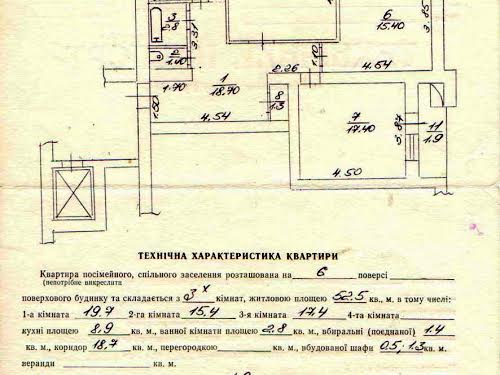 6
15.40
3.85
3
2.8
3.31
2
1.40
1.10
2.26
4.64
1
18.70
1.70
1.80
8
1.3
4.54
7
17.40
3.87
11
1.9
4.50
ТЕХНІЧНА ХАРАКТЕРИСТИКА КВАРТИРИ
Квартира посімейного, спільного заселення розташована на 6 поверсі
(непотрібне викреслити
поверхового будинку та складається з 3х кімнат, житловою площею 52.5 кв. м. в тому числі:
1-а кімната 19.7 2-га кімната 15.4 3-я кімната 17.4 4-та кімната
кухні площею 8,9 кв. м., ванної кімнати площею 2.8 кв. м., вбиральні (поєднаної) 1.4
кв. м., коридор 18,7 кв. м., перегородкою кв. м., вбудованої шафи 0.5; 1.3 кв. м.
веранди кв. м.